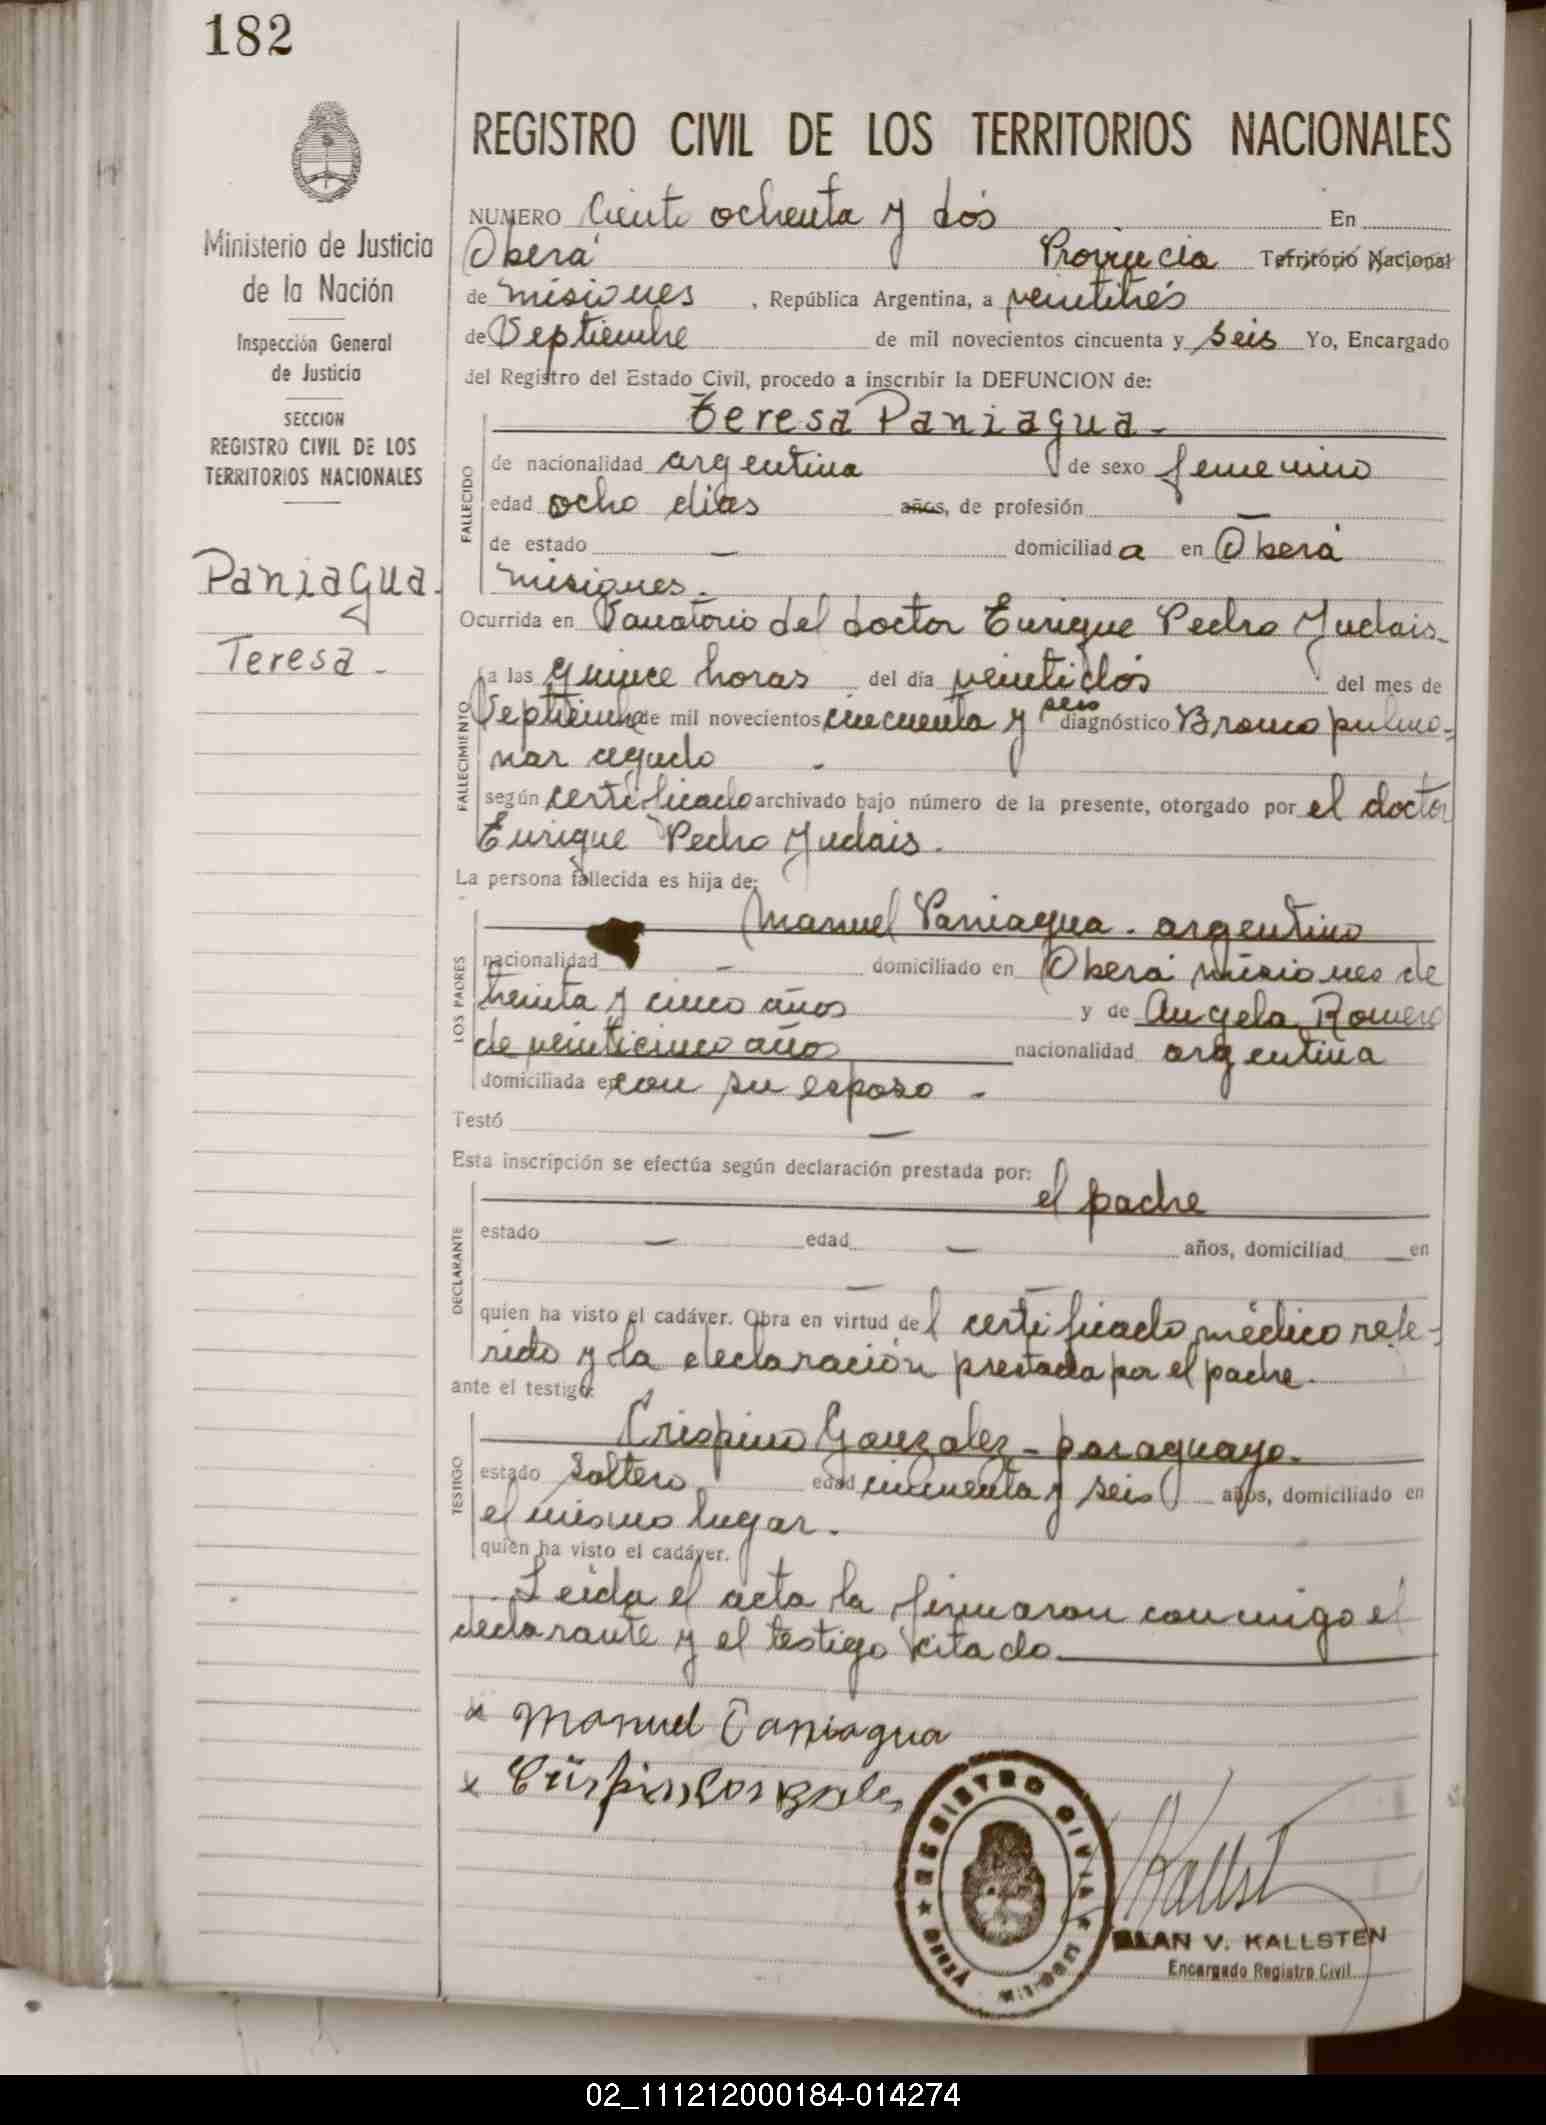 182
Ministerio de Justicia
de la Nación
Inspección General
de Justicia
SECCION
REGISTRO CIVIL DE LOS
TERRITORIOS NACIONALES
Paniagua.
Teresa -
REGISTRO CIVIL DE LOS TERRITORIOS NACIONALES
NUMERO Ciento ochenta y dós En
Oberá Provincia Territorio Nacional
de misiones , República Argentina, a veintitrés
de Septiembre de mil novecientos cincuenta y seis Yo, Encargado
del Registro del Estado Civil, procedo a inscribir la DEFUNCION de:
Teresa Paniagua -
FALLECIDO
de nacionalidad argentina de sexo femenino
edad ocho dias años, de profesión —
de estado — domiciliada en Oberá
misiones.-
Ocurrida en Sanatorio del doctor Enrique Pedro Yudais-
FALLECIMIENTO
a las quince horas del día veintidós del mes de
Septiembre de mil novecientos cincuenta y seis diagnóstico Bronco pulmo=
nar agudo -
según certificado archivado bajo número de la presente, otorgado por el doctor
Enrique Pedro Yudais.
La persona fallecida es hija de:
LOS PADRES
Manuel Paniagua - argentino
nacionalidad — domiciliado en Oberá misiones de
treinta y cinco años y de Angela Romero
de veinticinco años nacionalidad argentina
domiciliada en con su esposo -
Testó —
Esta inscripción se efectúa según declaración prestada por:
DECLARANTE
el padre
estado — edad — años, domiciliad — en
—
quien ha visto el cadáver. Obra en virtud del certificado médico refe-
rido y la declaración prestada por el padre.
ante el testigo:
TESTIGO
Crispino Gonzalez - paraguayo.
estado Soltero edad cincuenta y seis años, domiciliado en
el mismo lugar.
quien ha visto el cadáver.
Leida el acta la firmaron conmigo el
declarante y el testigo citado
x Manuel Paniagua
x Crispin Gonzales
REGISTRO CIVIL
OBERA
MISIONES
Kallst
ELAN V. KALLSTEN
Encargado Registro Civil
02_111212000184-014274